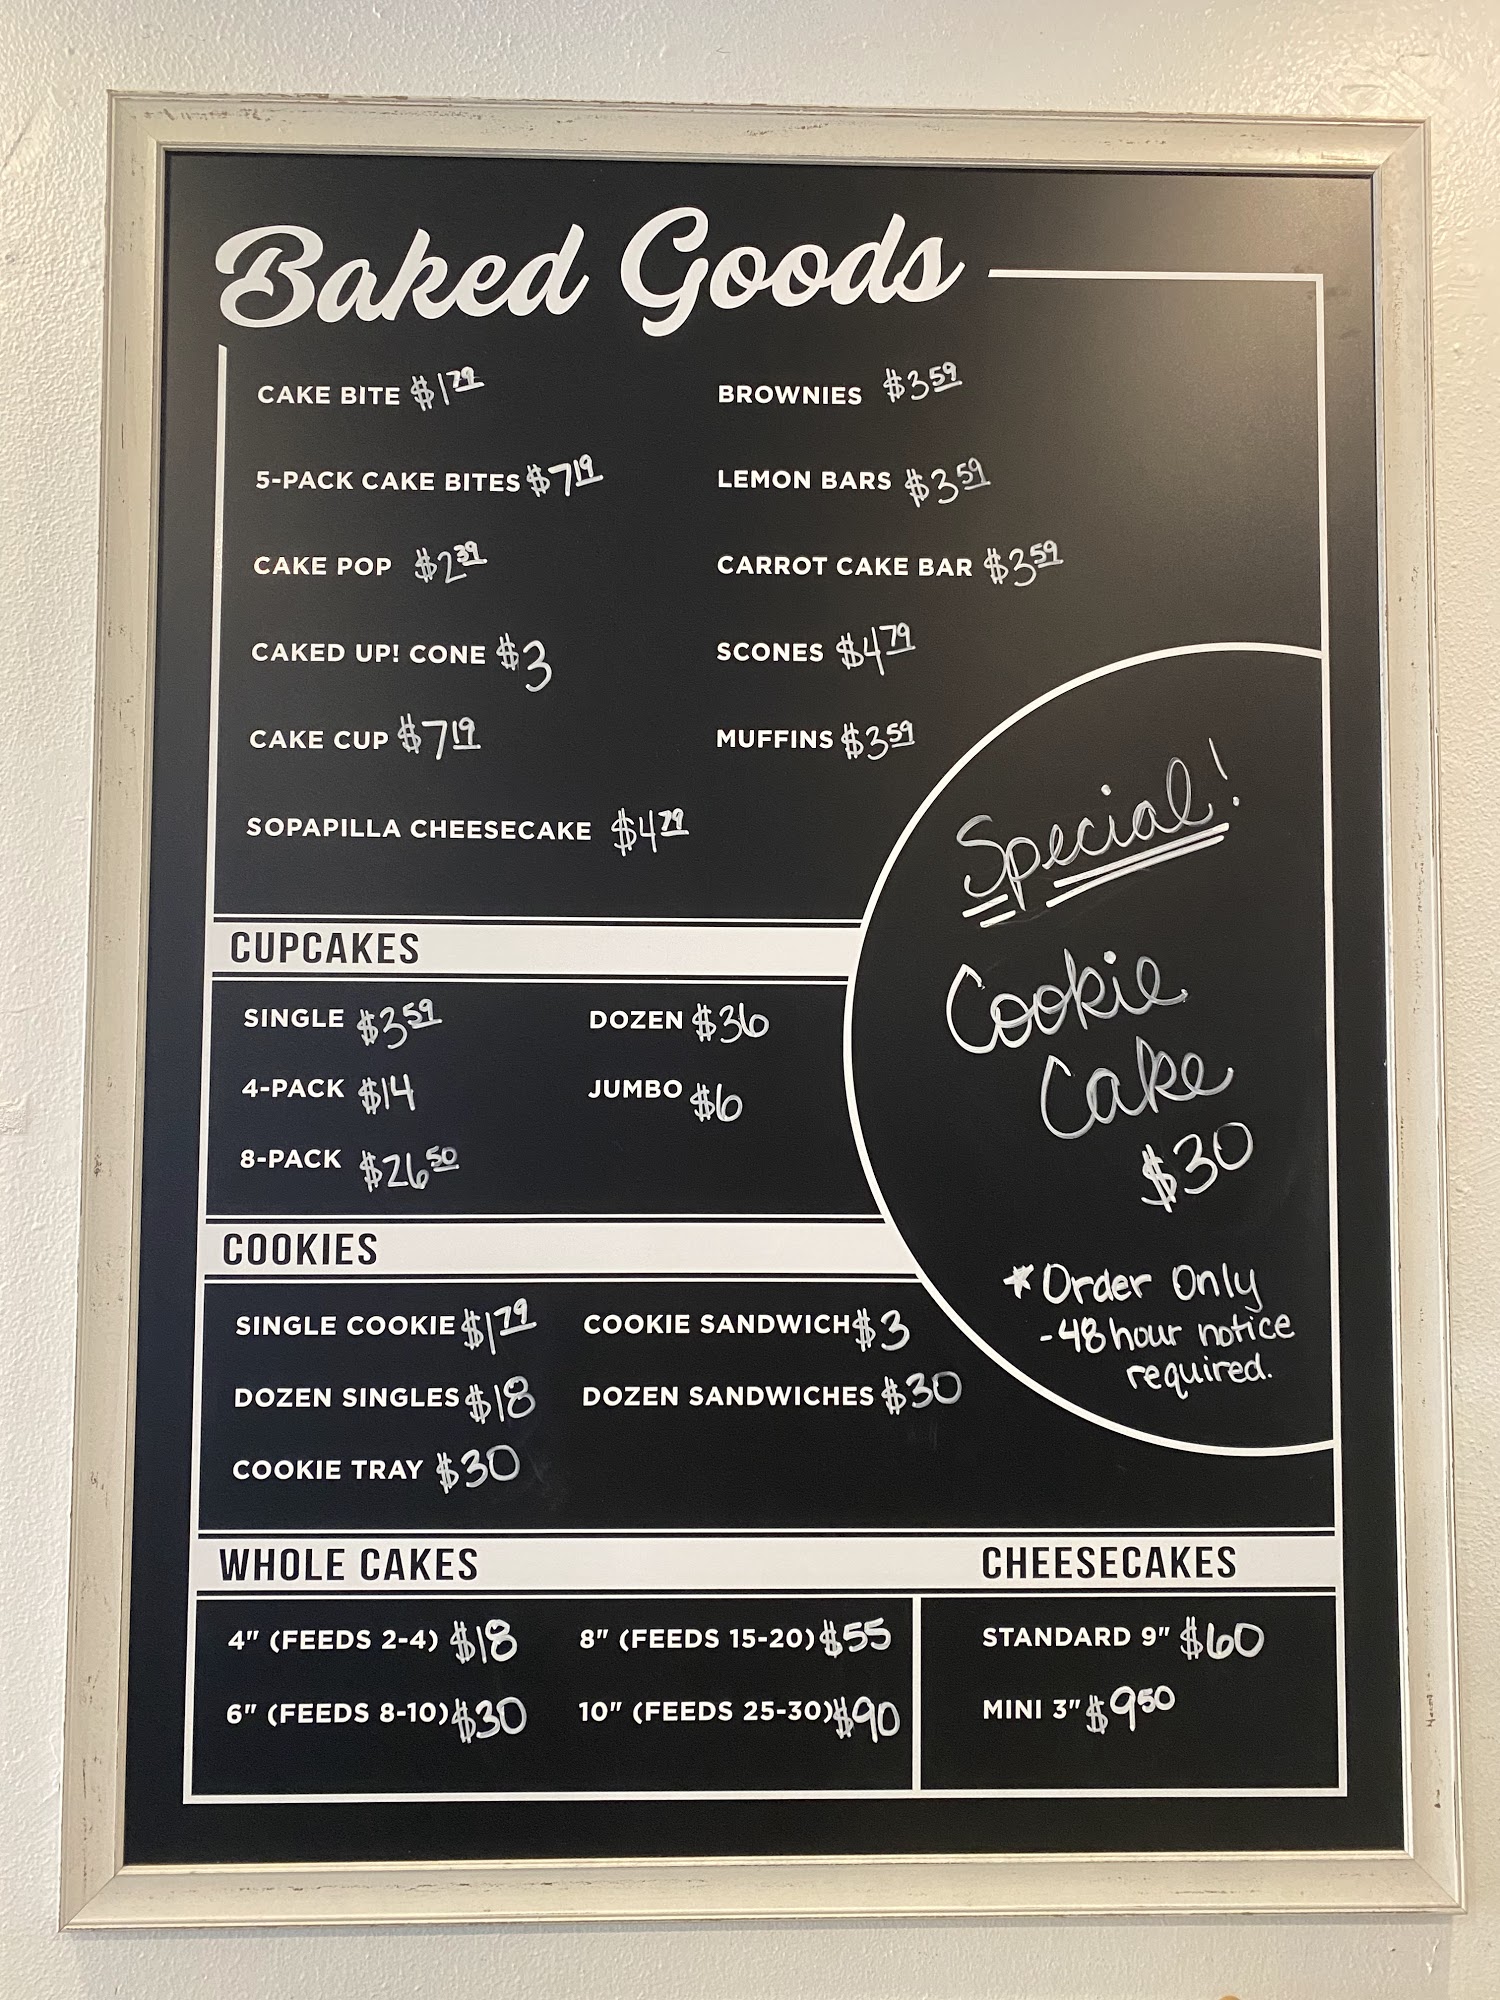 Baked Goods
CAKE BITE $1.79
BROWNIES $3.59
5-PACK CAKE BITES $7.19
LEMON BARS $3.59
CAKE POP $2.39
CARROT CAKE BAR $3.59
CAKED UP! CONE $3
SCONES $4.79
CAKE CUP $7.19
MUFFINS $3.59
SOPAPILLA CHEESECAKE $4.79
Special!
Cookie
Cake
$30
*Order Only
-48 hour notice
required.
CUPCAKES
SINGLE $3.59
DOZEN $36
4-PACK $14
JUMBO $6
8-PACK $26.50
COOKIES
SINGLE COOKIE $1.79
COOKIE SANDWICH $3
DOZEN SINGLES $18
DOZEN SANDWICHES $30
COOKIE TRAY $30
WHOLE CAKES
4" (FEEDS 2-4) $18
8" (FEEDS 15-20) $55
6" (FEEDS 8-10) $30
10" (FEEDS 25-30) $90
CHEESECAKES
STANDARD 9" $60
MINI 3" $9.50